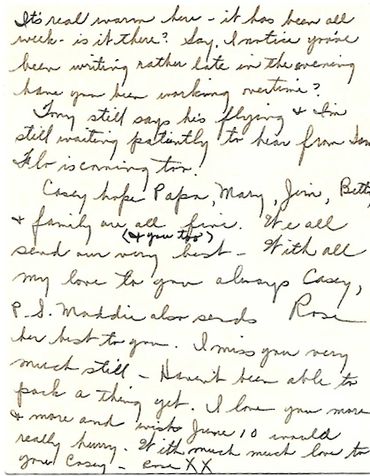 It's real warm here - it has been all
week - is it there? Say, I notice you've
been writing rather late in the evening
have you been working overtime?
Tony still says his flying & I'm
still waiting patiently to hear from
Flo is coming too.
Casey hope Papa, Mary, Jim, Betty
& family are all fine. We all
(& you too)
send our very best - With all
my love to you always Casey,
Rose
P.S. Maddie also sends
her best to you. I miss you very
much still - Haven't been able to
pack a thing yet. I love you more
& more and wish June 10 would
really hurry. With much much love to
you Casey - Rose XX